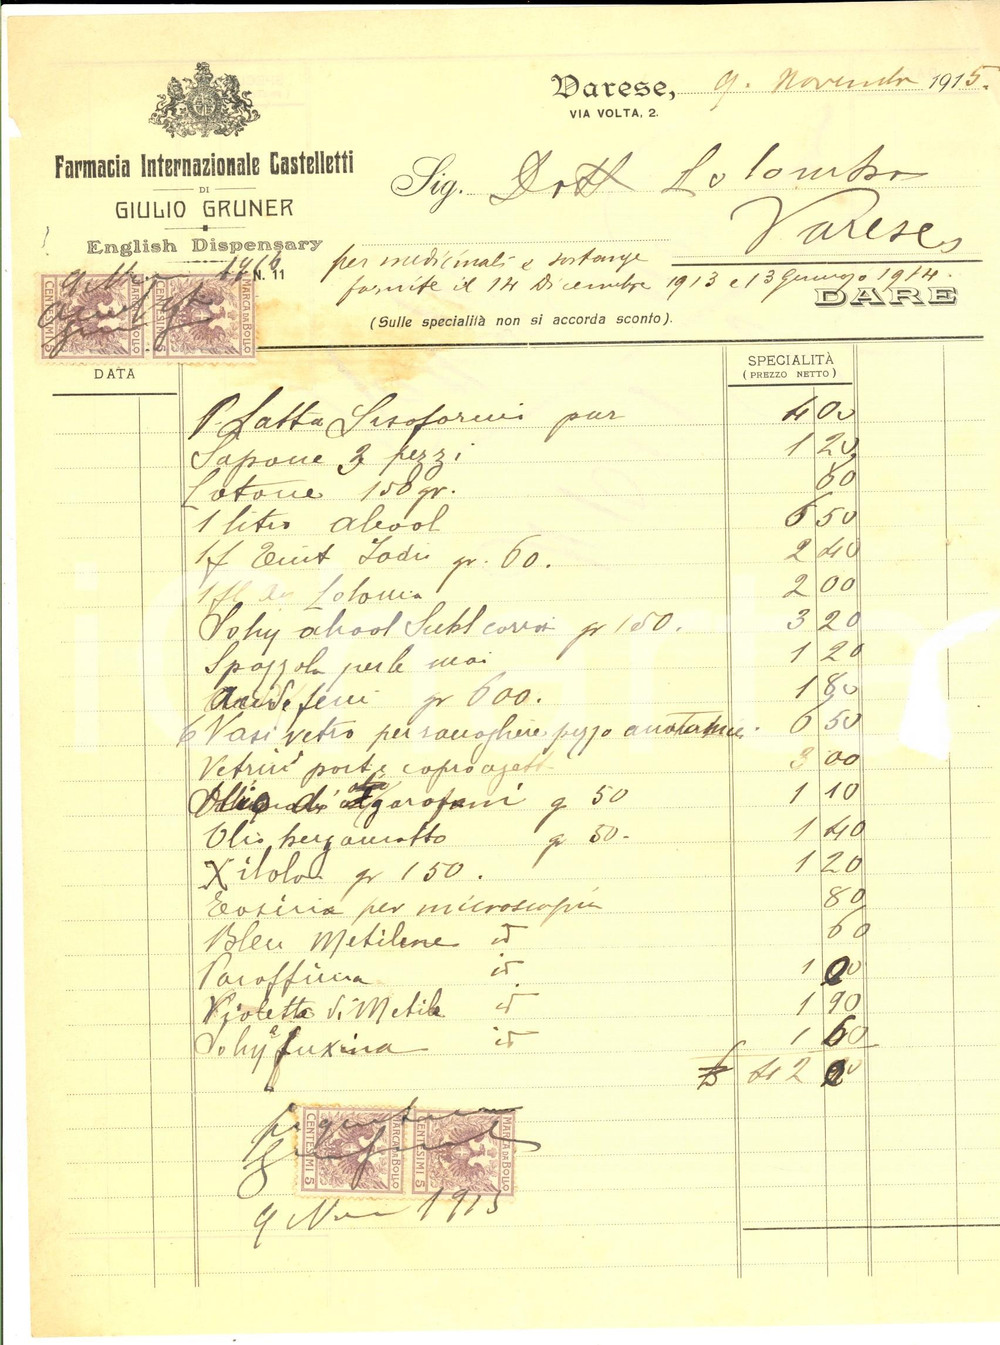 Varese, 9. Novembre 1915.
VIA VOLTA, 2.
Farmacia Internazionale Castelletti
DI
GIULIO GRUNER
English Dispensary
Sig. Dott Colombo
Varese
N. 11
per medicinali e sostanze
fornite il 14 Dicembre 1913 e 13 Gennajo 1914.
DARE
(Sulle specialità non si accorda sconto).
MARCA DA BOLLO CENTESIMI 5
MARCA DA BOLLO CENTESIMI 5
DATA
SPECIALITÀ
(PREZZO NETTO)
Latta Lisoformio pur 4 00
Sapone 3 pezzi 1 20
Cotone 150 gr. 60
1 litro alcool 6 50
1 f Tint Jodi gr. 60. 2 40
1 fl Colonia 2 00
Soluz alcool Subl corros gr 150. 3 20
Spazzola per le mani 1 20
gr 600. 1 80
6 Vasi vetro per raccogliere pezzo anatomici. 6 50
Vetrini porta coproogetti 3 00
Olio di garofani g 50 1 10
Olio bergamotto gr 50. 1 40
Xilolo gr 150. 1 20
Eosina per microscopia 80
Bleu Metilene id 60
Paraffina id 1 20
Violetto di Metile id 1 90
Soluz fuxina id 1 60
£ 42 20
MARCA DA BOLLO CENTESIMI 5
MARCA DA BOLLO CENTESIMI 5
9 Nov 1915